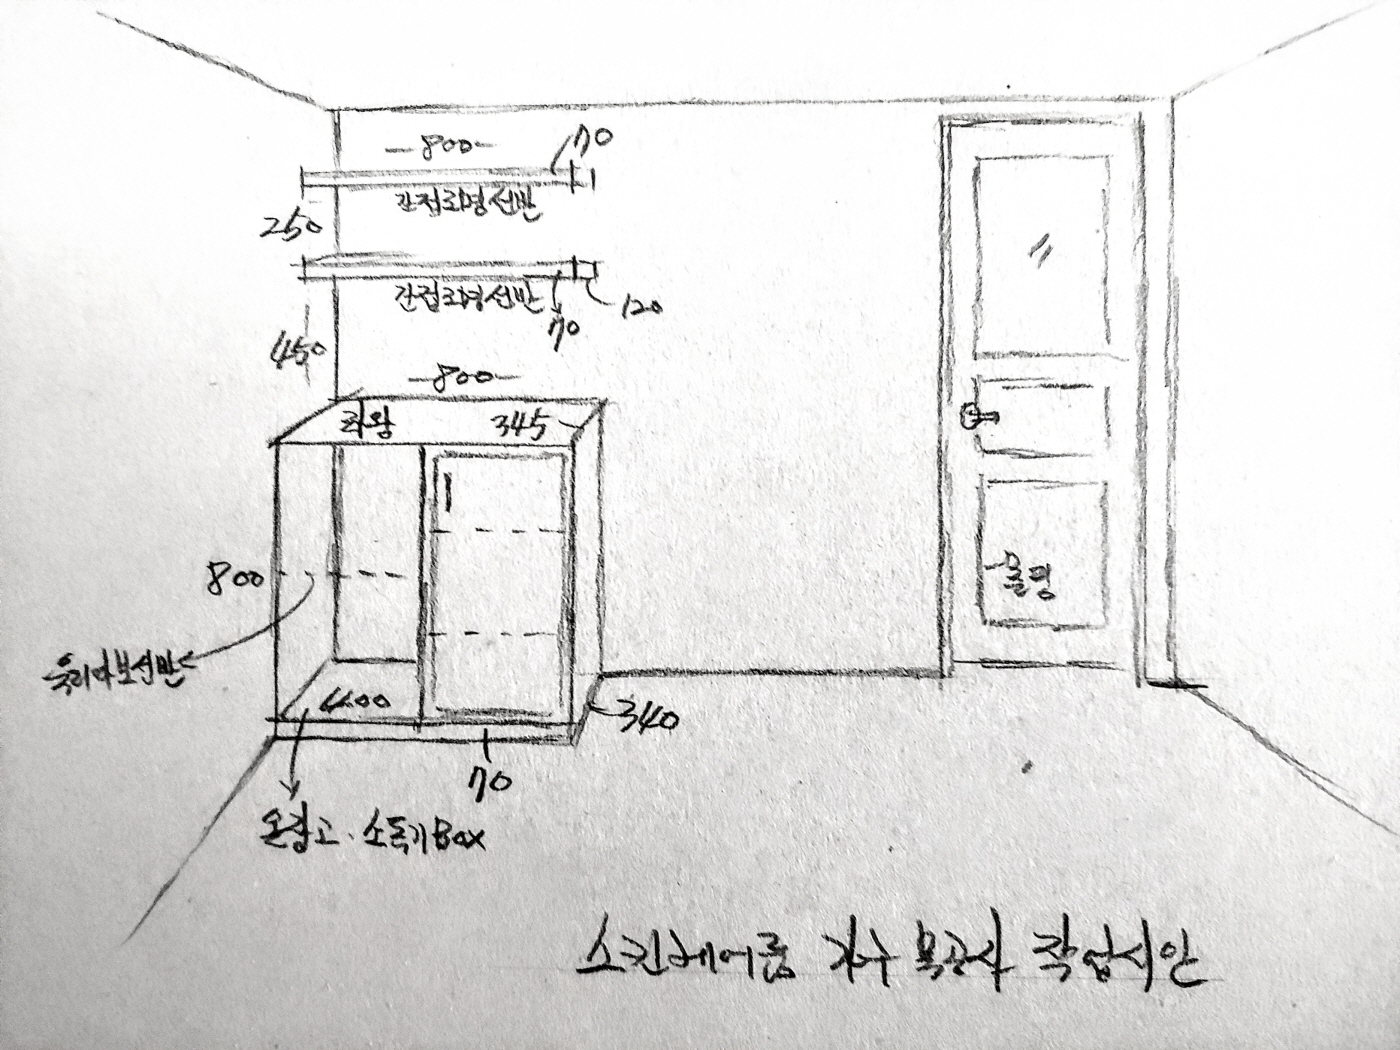 -800-
70
간접조명선반
250
간접조명선반
70
120
450
-800-
345
800
유리다보선반
400
340
70
온장고·소독기Box
스킨케어룸 가구 목공사 작업시안